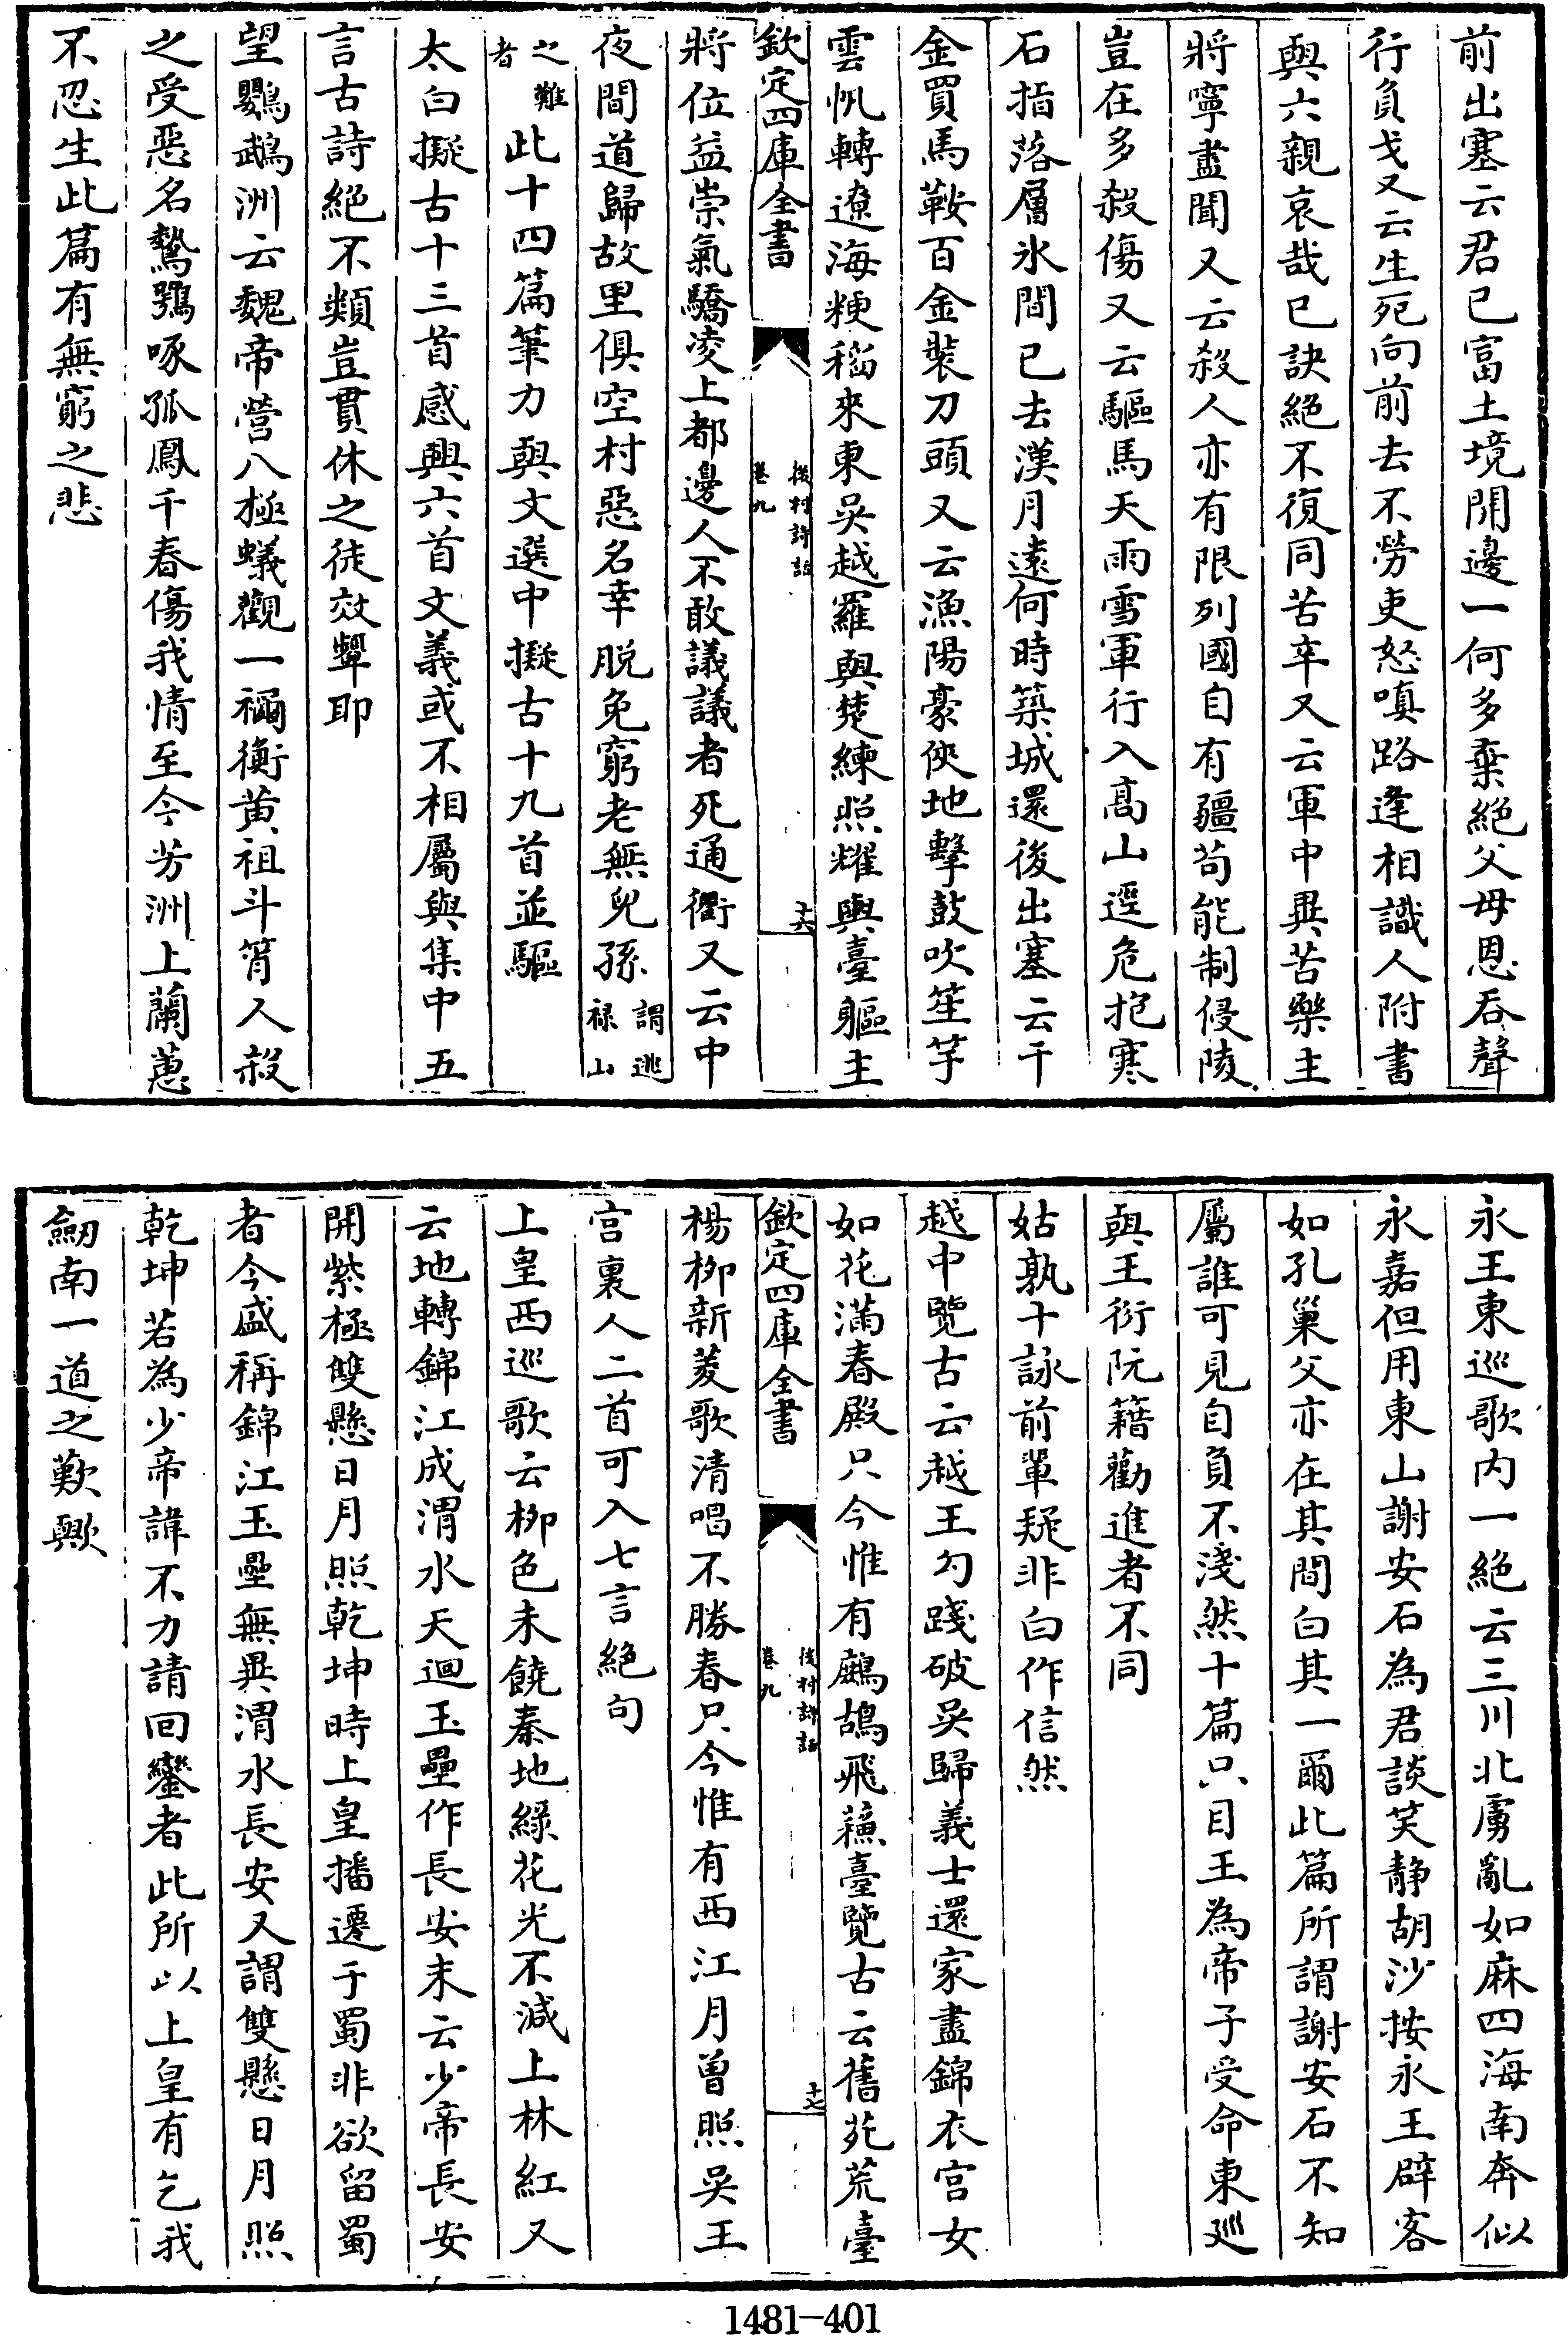 前出塞云君已富土境開邊一何多棄絕父母恩吞聲
行負戈又云生死向前去不勞吏怒嗔路逢相識人附書
與六親哀哉已訣絕不復同苦辛又云軍中異苦樂主
將寧盡聞又云殺人亦有限列國自有疆苟能制侵陵
豈在多殺傷又云驅馬天雨雪軍行入高山逕危抱寒
石指落層氷間已去漢月遠何時築城還後出塞云千
金買馬鞍百金裝刀頭又云漁陽豪俠地擊鼓吹笙竽
雲帆轉遼海粳稻來東吳越羅與楚練照耀輿臺軀主
欽定四庫全書
後村詩話
卷九
十六
將位益崇氣驕凌上都邊人不敢議議者死通衢又云中
夜間道歸故里俱空村惡名幸脫免窮老無兒孫謂逃祿山
之難者此十四篇筆力與文選中擬古十九首並驅
太白擬古十三首感興六首文義或不相屬與集中五
言古詩絕不類豈貫休之徒效顰耶
望鸚鵡洲云魏帝營八極蟻觀一禰衡黃祖斗筲人殺
之受惡名鷙鶚啄孤鳳千春傷我情至今芳洲上蘭蕙
不忍生此篇有無窮之悲
永王東巡歌内一絕云三川北虜亂如麻四海南奔似
永嘉但用東山謝安石為君談笑静胡沙按永王辟客
如孔巢父亦在其間白其一爾此篇所謂謝安石不知
屬誰可見自負不淺然十篇只目王為帝子受命東廵
與王衍阮籍勸進者不同
姑孰十詠前輩疑非白作信然
越中覽古云越王勾踐破吳歸義士還家盡錦衣宫女
如花滿春殿只今惟有鷓鴣飛蘓臺覽古云舊苑荒臺
欽定四庫全書
後村詩話
卷九
十七
楊柳新菱歌清唱不勝春只今惟有西江月曾照吳王
宫裏人二首可入七言絕句
上皇西巡歌云柳色未饒秦地綠花光不減上林紅又
云地轉錦江成渭水天迴玉壘作長安末云少帝長安
開紫極雙懸日月照乾坤時上皇播遷于蜀非欲留蜀
者今盛稱錦江玉壘無異渭水長安又謂雙懸日月照
乾坤若為少帝諱不力請回鑾者此所以上皇有乞我
劒南一道之歎歟
1481-401